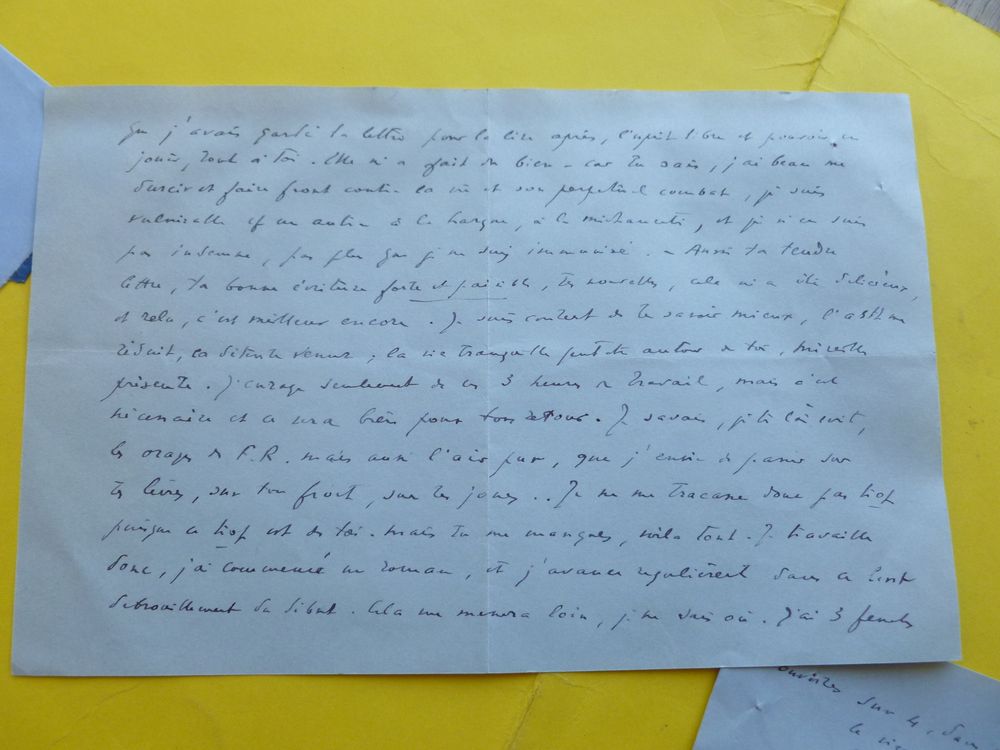 que j'avais gardé ta lettre pour la lire après, l'esprit libre et pouvoir, en
jouir, tout à toi. Elle m'a fait du bien - car tu sais, j'ai beau me
durcir et faire front contre la vie et son perpétuel combat, je suis
vulnérable à la hargne, à la méchanceté, et je n'en suis
pas indemne, pas plus que je ne suis immunisé. - Aussi ta tendre
lettre, ta bonne écriture forte et paisible, tes nouvelles, cela m'a été délicieux,
et relu, c'est meilleur encore. Je suis content de te savoir mieux, l'asthme
réduit, la détente venue ; la vie tranquille autour de toi, Mireille
présente. J'enrage seulement de ces 3 heures de travail, mais c'est
nécessaire et ce sera bien pour ton retour. Je savais, je te l'ai écrit,
les orages de F.R. mais aussi l'air pur, que j'envie de passer sur
tes lèvres, sur ton front, sur tes joues.. Je ne me tracasse donc pas trop
puisque ce trop est de toi. Mais tu me manques, voilà tout. Je travaille
donc, j'ai commencé un roman, et j'avance régulièrement dans ce lent
débrouillement du début. Cela me mènera loin, je ne sais où. J'ai 3 fenêtres
ouvertes sur